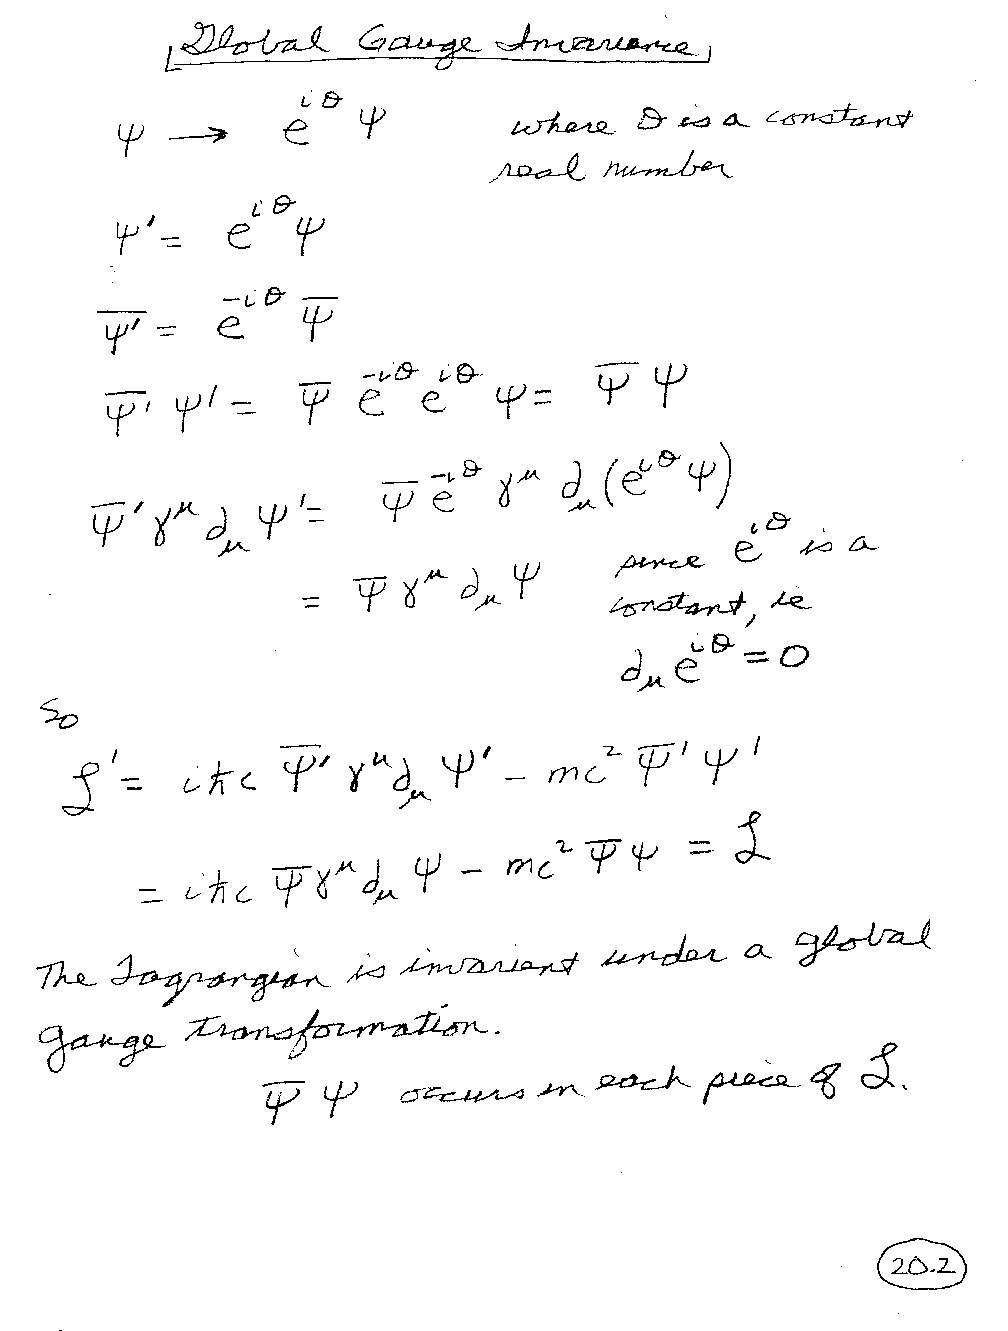 Global Gauge Invariance
ψ → e^{iθ} ψ where θ is a constant
real number
ψ' = e^{iθ} ψ
ψ̄' = e^{-iθ} ψ̄
ψ̄' ψ' = ψ̄ e^{-iθ} e^{iθ} ψ = ψ̄ ψ
ψ̄' γ^μ ∂_μ ψ' = ψ̄ e^{-iθ} γ^μ ∂_μ (e^{iθ} ψ)
= ψ̄ γ^μ ∂_μ ψ since e^{iθ} is a
constant, ie
∂_μ e^{iθ} = 0
So
ℒ' = iħc ψ̄' γ^μ ∂_μ ψ' - mc² ψ̄' ψ'
= iħc ψ̄ γ^μ ∂_μ ψ - mc² ψ̄ ψ = ℒ
The Lagrangian is invariant under a global
gauge transformation.
ψ̄ ψ occurs in each piece of ℒ.
20.2